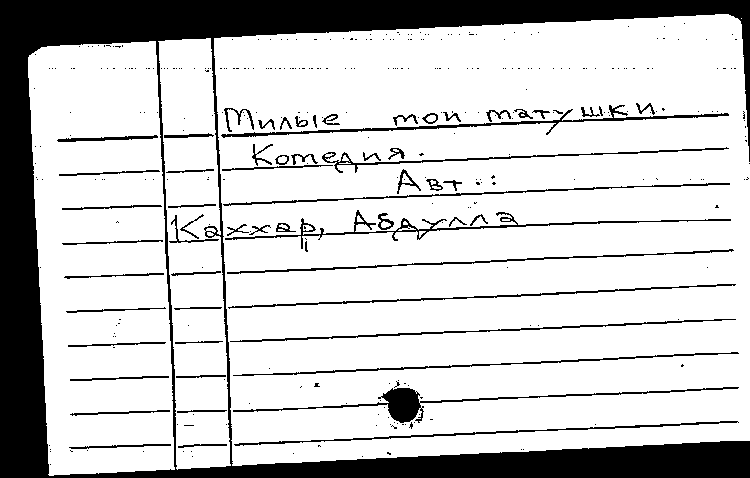 Милые мои матушки.
Комедия.
Авт.:
Каххар, Абдулла